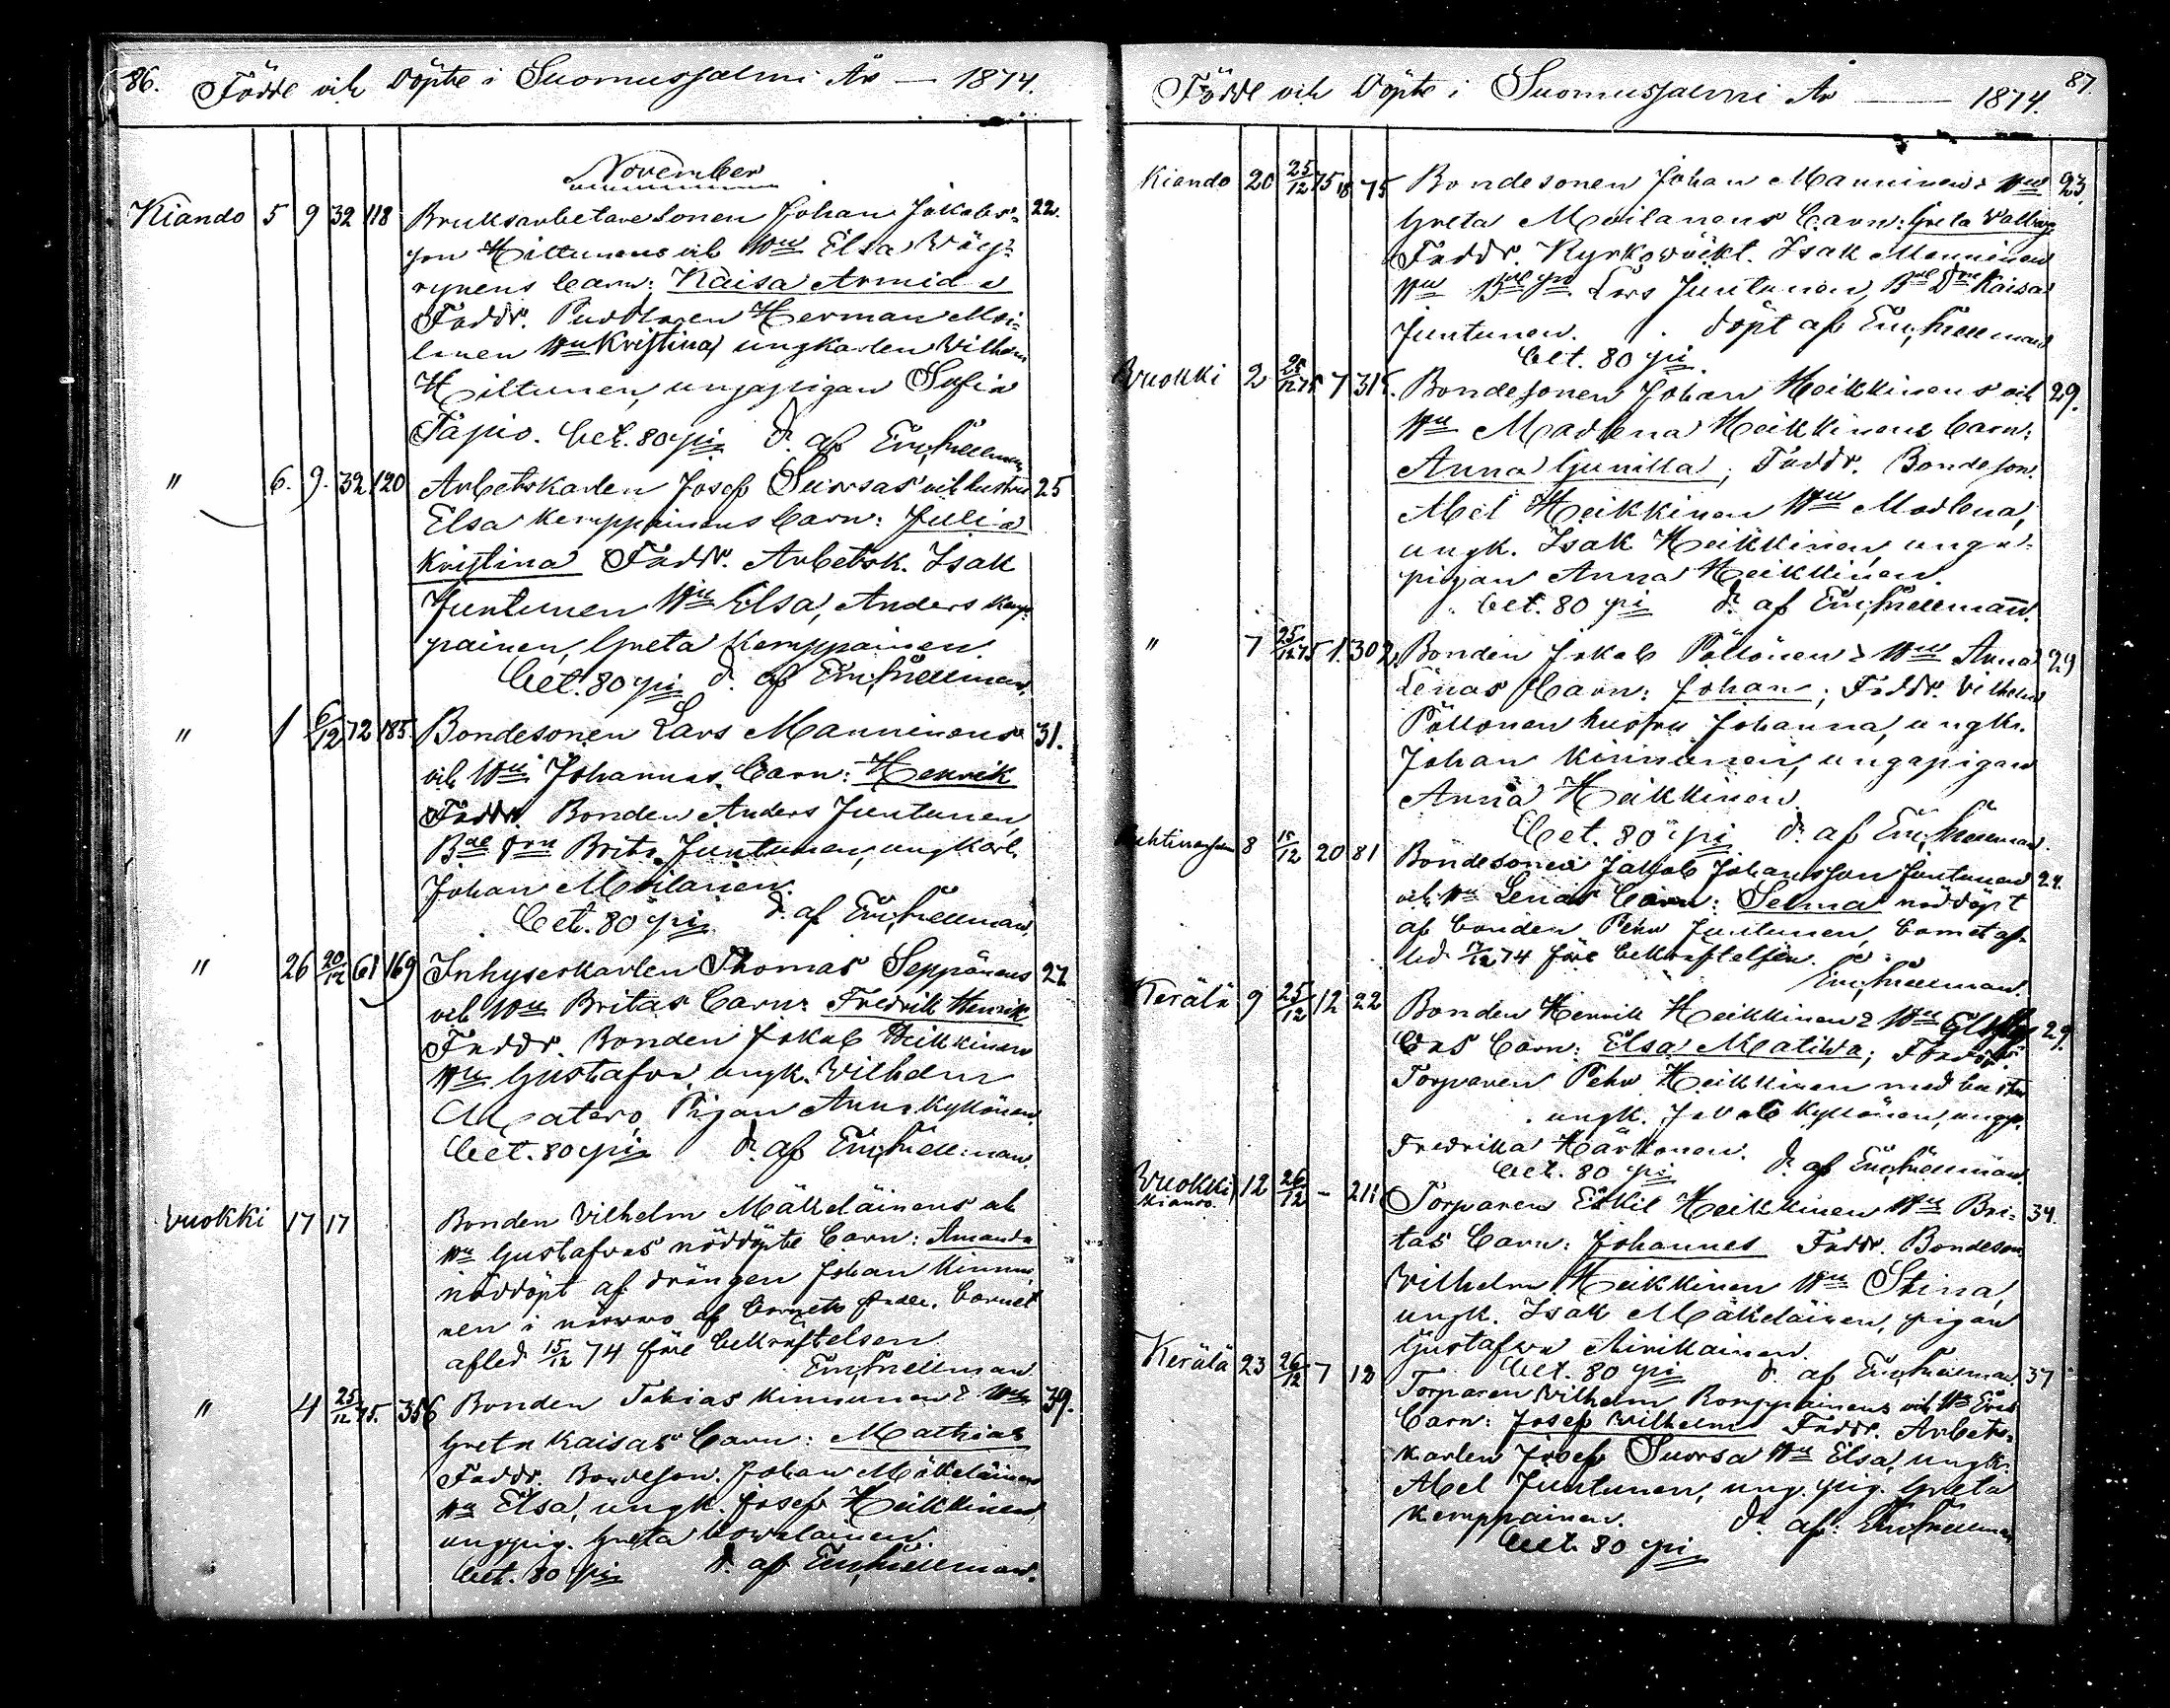 86. Födde och Döpte i Suomussalmi År — 1874.
November
Kiando 5 9 32 118 Bruksarbetaresonen Johan Jakobs- 22.
son Hiltunens och Hu Elsa Väy-
rynens barn: Kaisa Armida
Faddr. Herman Moi-
lanen Hu Kristina, ungkarlen Vilhelm
Hiltunen, ungapigan Sofia
Tapio. bet. 80 pi D. af Em. Snellman
" 6. 9. 32 120 Arbetskarlen Josef Suorsas och hustru 25
Elsa Kemppainens barn: Julia
Kristina Faddr. Arbetsk. Isak
Juntunen Hu Elsa, Anders Kemp-
painen, Greta Kemppainen.
bet. 80 pi D. af Em. Snellman.
" 1 6/12 72 185. Bondesonen Lars Manninens 31.
och Hu Johannas barn: Henrik
Faddr. Bonden Anders Juntunen,
Brita Juntunen, ungkarl.
Johan Moilanen.
bet. 80 pi D. af Em. Snellman.
" 26 20/12 61 169 Inhyseskarlen Thomas Seppänens 27
och Hu Britas barn: Fredrik Henrik
Faddr. Bonden Jakob Heikkinen
Hu Gustafva, ungk. Vilhelm
Matero, Pigan Anna Kyllönen.
bet. 80 pi D. af Em. Snellman.
Vuokki 17 17 Bonden Vilhelm Mäkeläinens och
Hu Gustafvas nöddöpte barn: Amanda
nöddöpt af drängen Johan Kinnu-
nen i närvaro af barnets fader. barnet
afled 15/12 74 före bekräftelsen
Em. Snellman
" 4 25/12 75. 356 Bonden Tobias Kinnunen & Hu 39.
Greta Kaisas barn: Mathias
Faddr. Bondeson. Johan Mäkeläinen
Hu Elsa, ungk. Josef Heikkinen,
ungpig. Greta
bet. 80 pi D. af Em. Snellman.
Födde och Döpte i Suomussalmi År — 1874. 87.
Kiando 20 25/12 75 18 75 Bondesonen Johan Manninen & Hu 23.
Greta Moilanens barn: Greta Valborg
Faddr. Kyrkoväkt. Isak Manninen
Hu Lars Juntunen, Kaisa
Juntunen. döpt af Em. Snellman
bet. 80 pi
Vuokki 2 75 7 315. Bondesonen Johan Heikkinens och 29.
Hu Madlena Heikkinens barn:
Anna Gunilla; Faddr. Bondeson.
Abel Heikkinen Hu Madlena,
ungk. Isak Heikkinen, unga-
pigan Anna Heikkinen.
bet. 80 pi D. af Em. Snellmann.
" 7 25/12 75 1. 302. Bonden Jakob Pöllönen & Hu Anna 29
Lenas barn: Johan; Faddr. Vilhelm
Pöllönen hustru Johanna, ungk.
Johan Kinnunen, ungapigan
Anna Heikkinen.
bet. 80 pi D. af Em. Snellman.
8 15/12 20 81 Bondesonen Jakob Johansson Juntunen 24.
och Hu Lenas barn: Selma nöddöpt
af bonden Pehr Juntunen, barnet af-
led 17/12 74 före bekräftelsen.
Em. Snellman.
Kerälä 9 25/12 12 22 Bonden Henrik Heikkinen & Hu 29.
Evas barn: Elsa Matilda; Faddr.
Torparen Pehr Heikkinen med hustru
ungk. Jakob Kyllönen, ungp.
Fredrika Härkönen.
bet. 80 pi D. af Em. Snellman.
Vuokki Kiando. 12 26/12 - 211 Torparen Eskil Heikkinen Hu Bri- 34.
tas barn: Johannes Faddr. Bondeson
Vilhelm Heikkinen Hu Stina,
ungk. Isak Mäkeläinen, pigan
Gustafva Airikainen.
bet. 80 pi D. af Em. Snellman.
Kerälä 23 26/12 7 12 Torparen Vilhelm Romppainens och Hu Evas 37
barn: Josef Vilhelm Faddr. Arbets-
karlen Josef Suorsa Hu Elsa, ungk.
Abel Juntunen, ung. pig. Greta
Kemppainen. D. af: Em. Snellman
bet. 80 pi